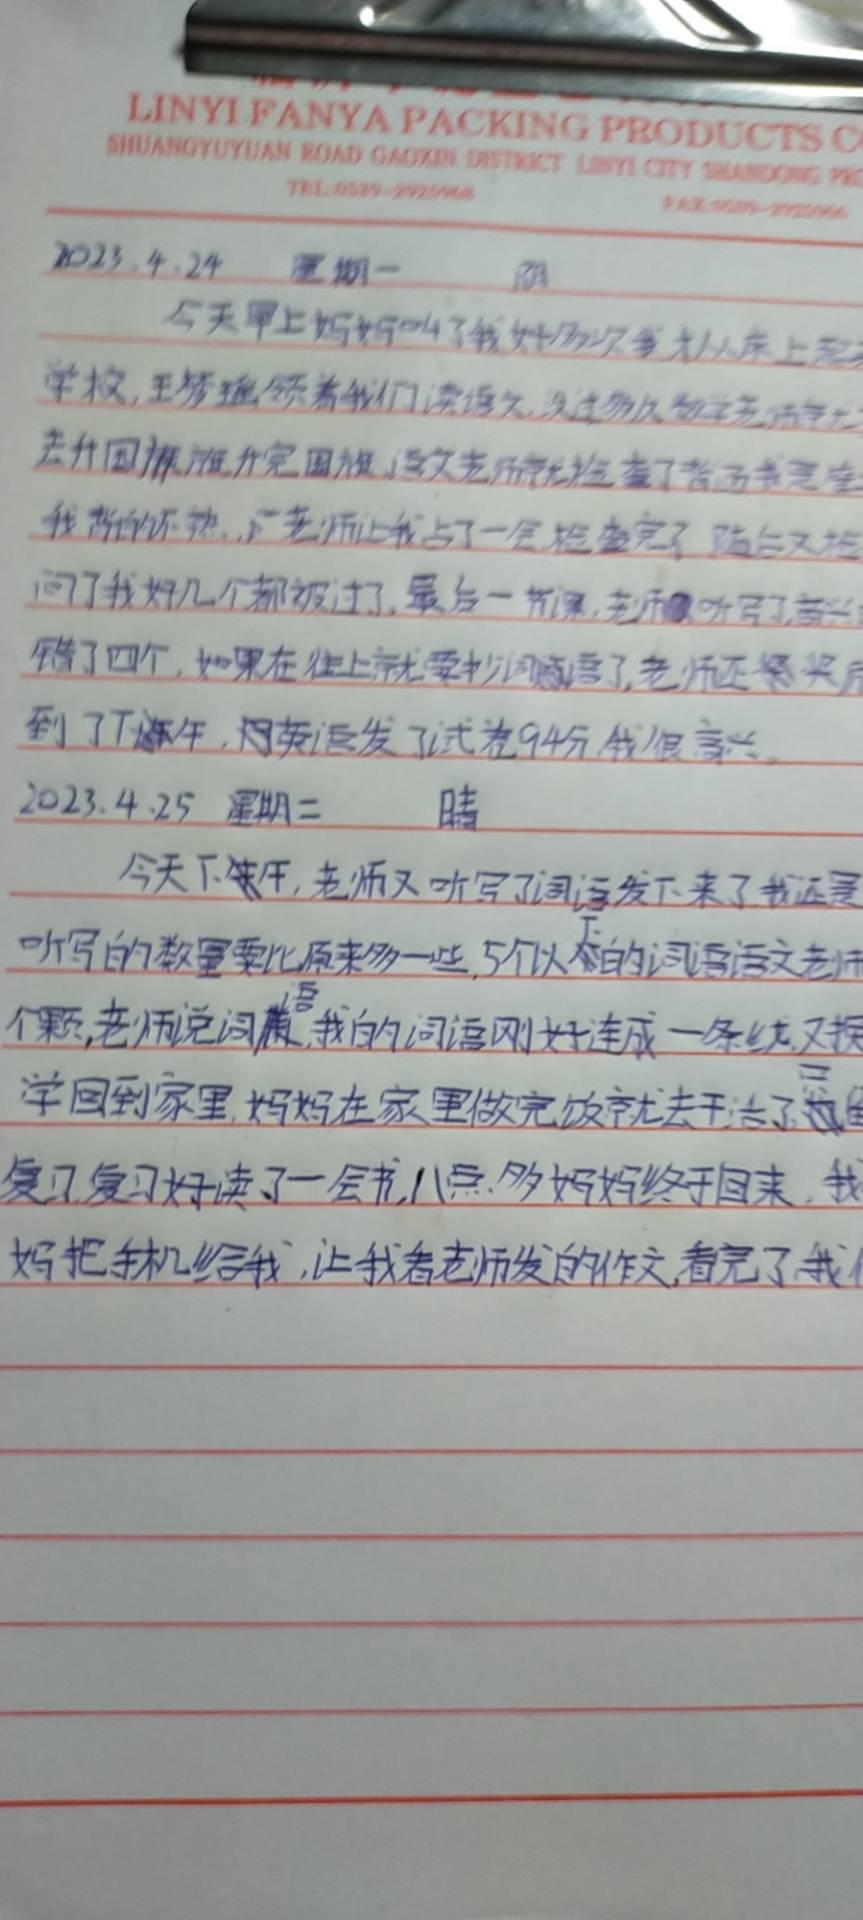 LINYI FANYA PACKING PRODUCTS CO
SHUANGYUYUAN ROAD GAOXIN DISTRICT LINYI CITY SHANDONG PRO
TEL:0539-2925966 FAX:0539-2925966
2023.4.24 星期一 阴
今天早上妈妈叫了我好多次我才从床上起
学校,王 领着我们读语文,没过多久数学老师就
去升国旗 升完国旗,语文老师就检查了背
我背的不熟, 老师让我占了一会,检查完了 随后又检
问了我好几个都被过了,最后一节课,老师 听写了高兴
错了四个,如果在往上就要抄词语了,老师还 奖
到了下午, 英语发了试卷94分,我很高兴。
2023.4.25 星期二 晴
今天下午,老师又听写了词语发下来了我还是
听写的数量要比原来多一些,5个以下的词语语文老师
个颗,老师说词语,我的词语刚好连成一条线,又摸
学回到家里,妈妈在家里做完饭就去干活了,
复习,复习好读了一会书,八点多妈妈终于回来,我
妈把手机给我,让我看老师发的作文,看完了,我